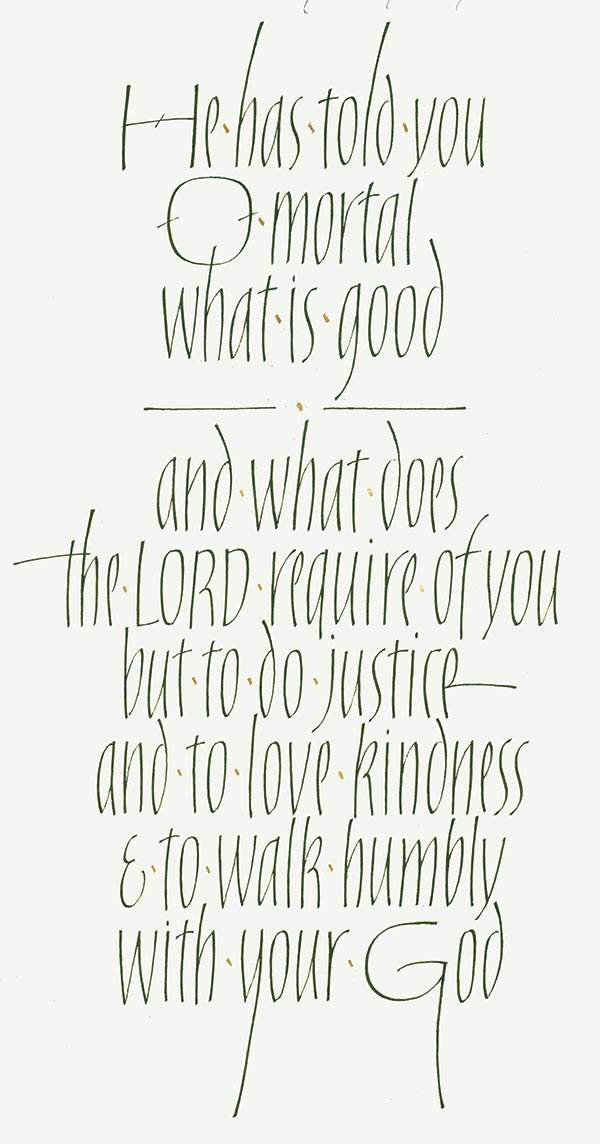 He·has·told·you
O·mortal
what·is·good
and·what·does
the·LORD·require·of you
but·to·do·justice
and·to·love·kindness
&·to·walk·humbly
with·your·God